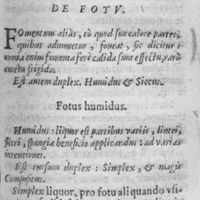 DE FOTV.
FOmentum aliàs, eò quod suo calore partei
quibus admouetur, foueat, sic dicitur
omnia enim fomenta ferè calida sunt effectu, rarò
autem frigida.
Est autem duplex. Humidus & Siccus.
Fotus humidus.
Humidus: liquor est paribus variis, lintei,
filtri, spongia beneficio applicandus: ad varias
intentiones.
Est rursum duplex: Simplex, & magis
Compositus.
Simplex liquor, pro fotu aliquando vsi-